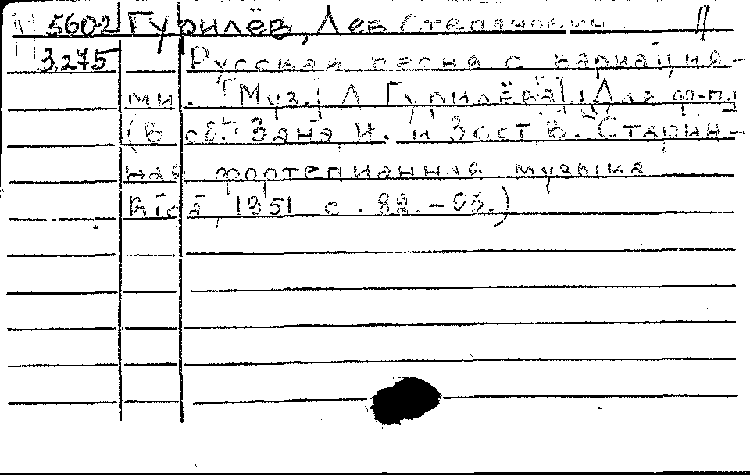 М 5602 Гурилёв, Лев Степанович 11
3275 Русская песня с вариация-
ми. [Муз.] Л Гурилёва] Для ф-п
(В сб.: Зана, И. и Зост, В. Старин-
ная фортепианная музыка
1951 с. 82.-93.)